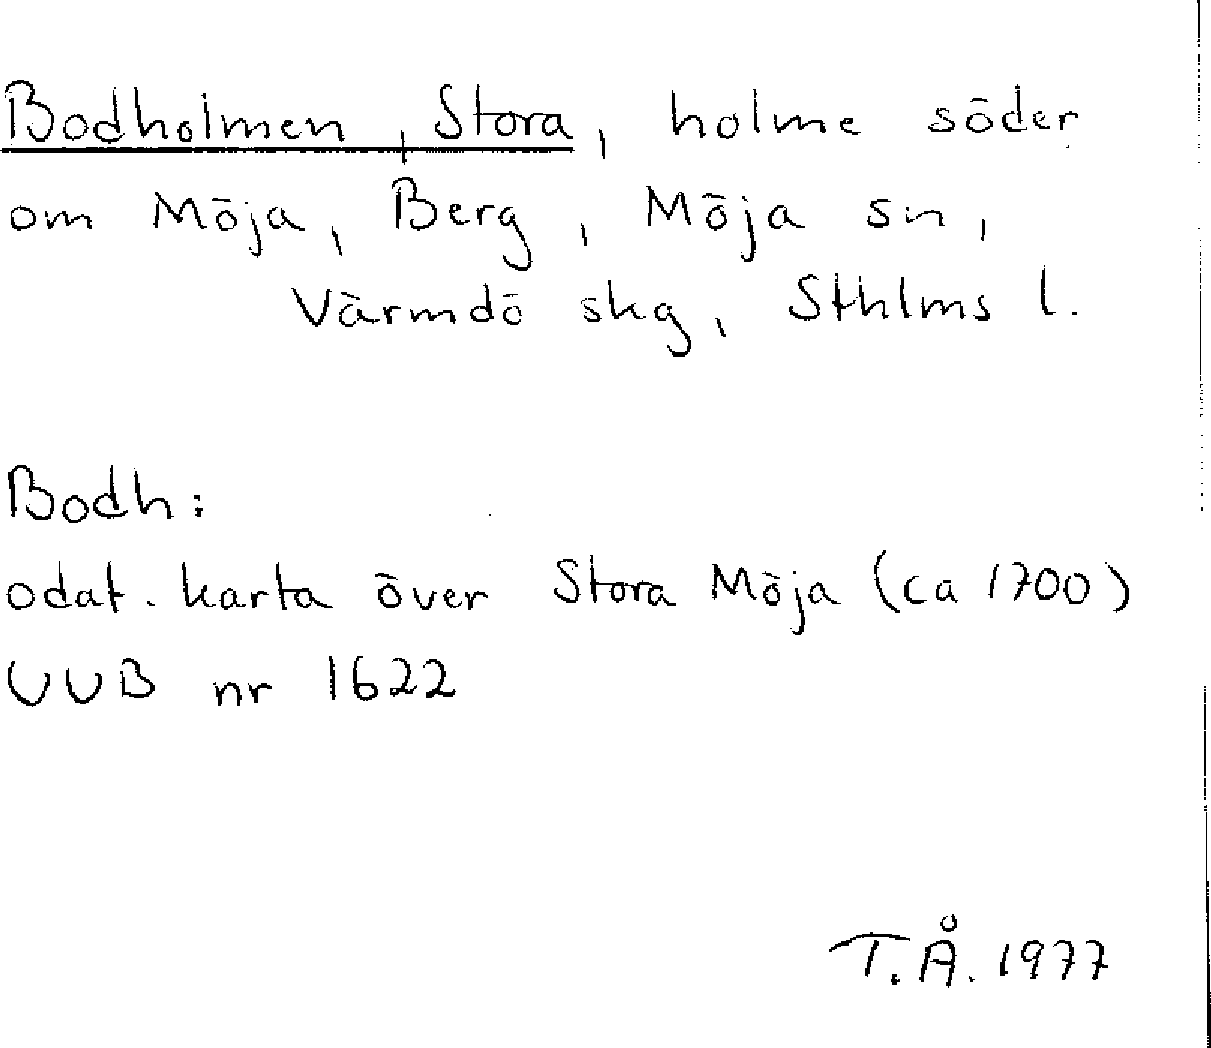 Bodholmen, Stora, holme söder
om Möja, Berg, Möja sn,
Värmdö skg, Sthlms l.
Bodh:
odat. karta över Stora Möja (ca 1700)
UUB nr 1622
T.Å. 1977